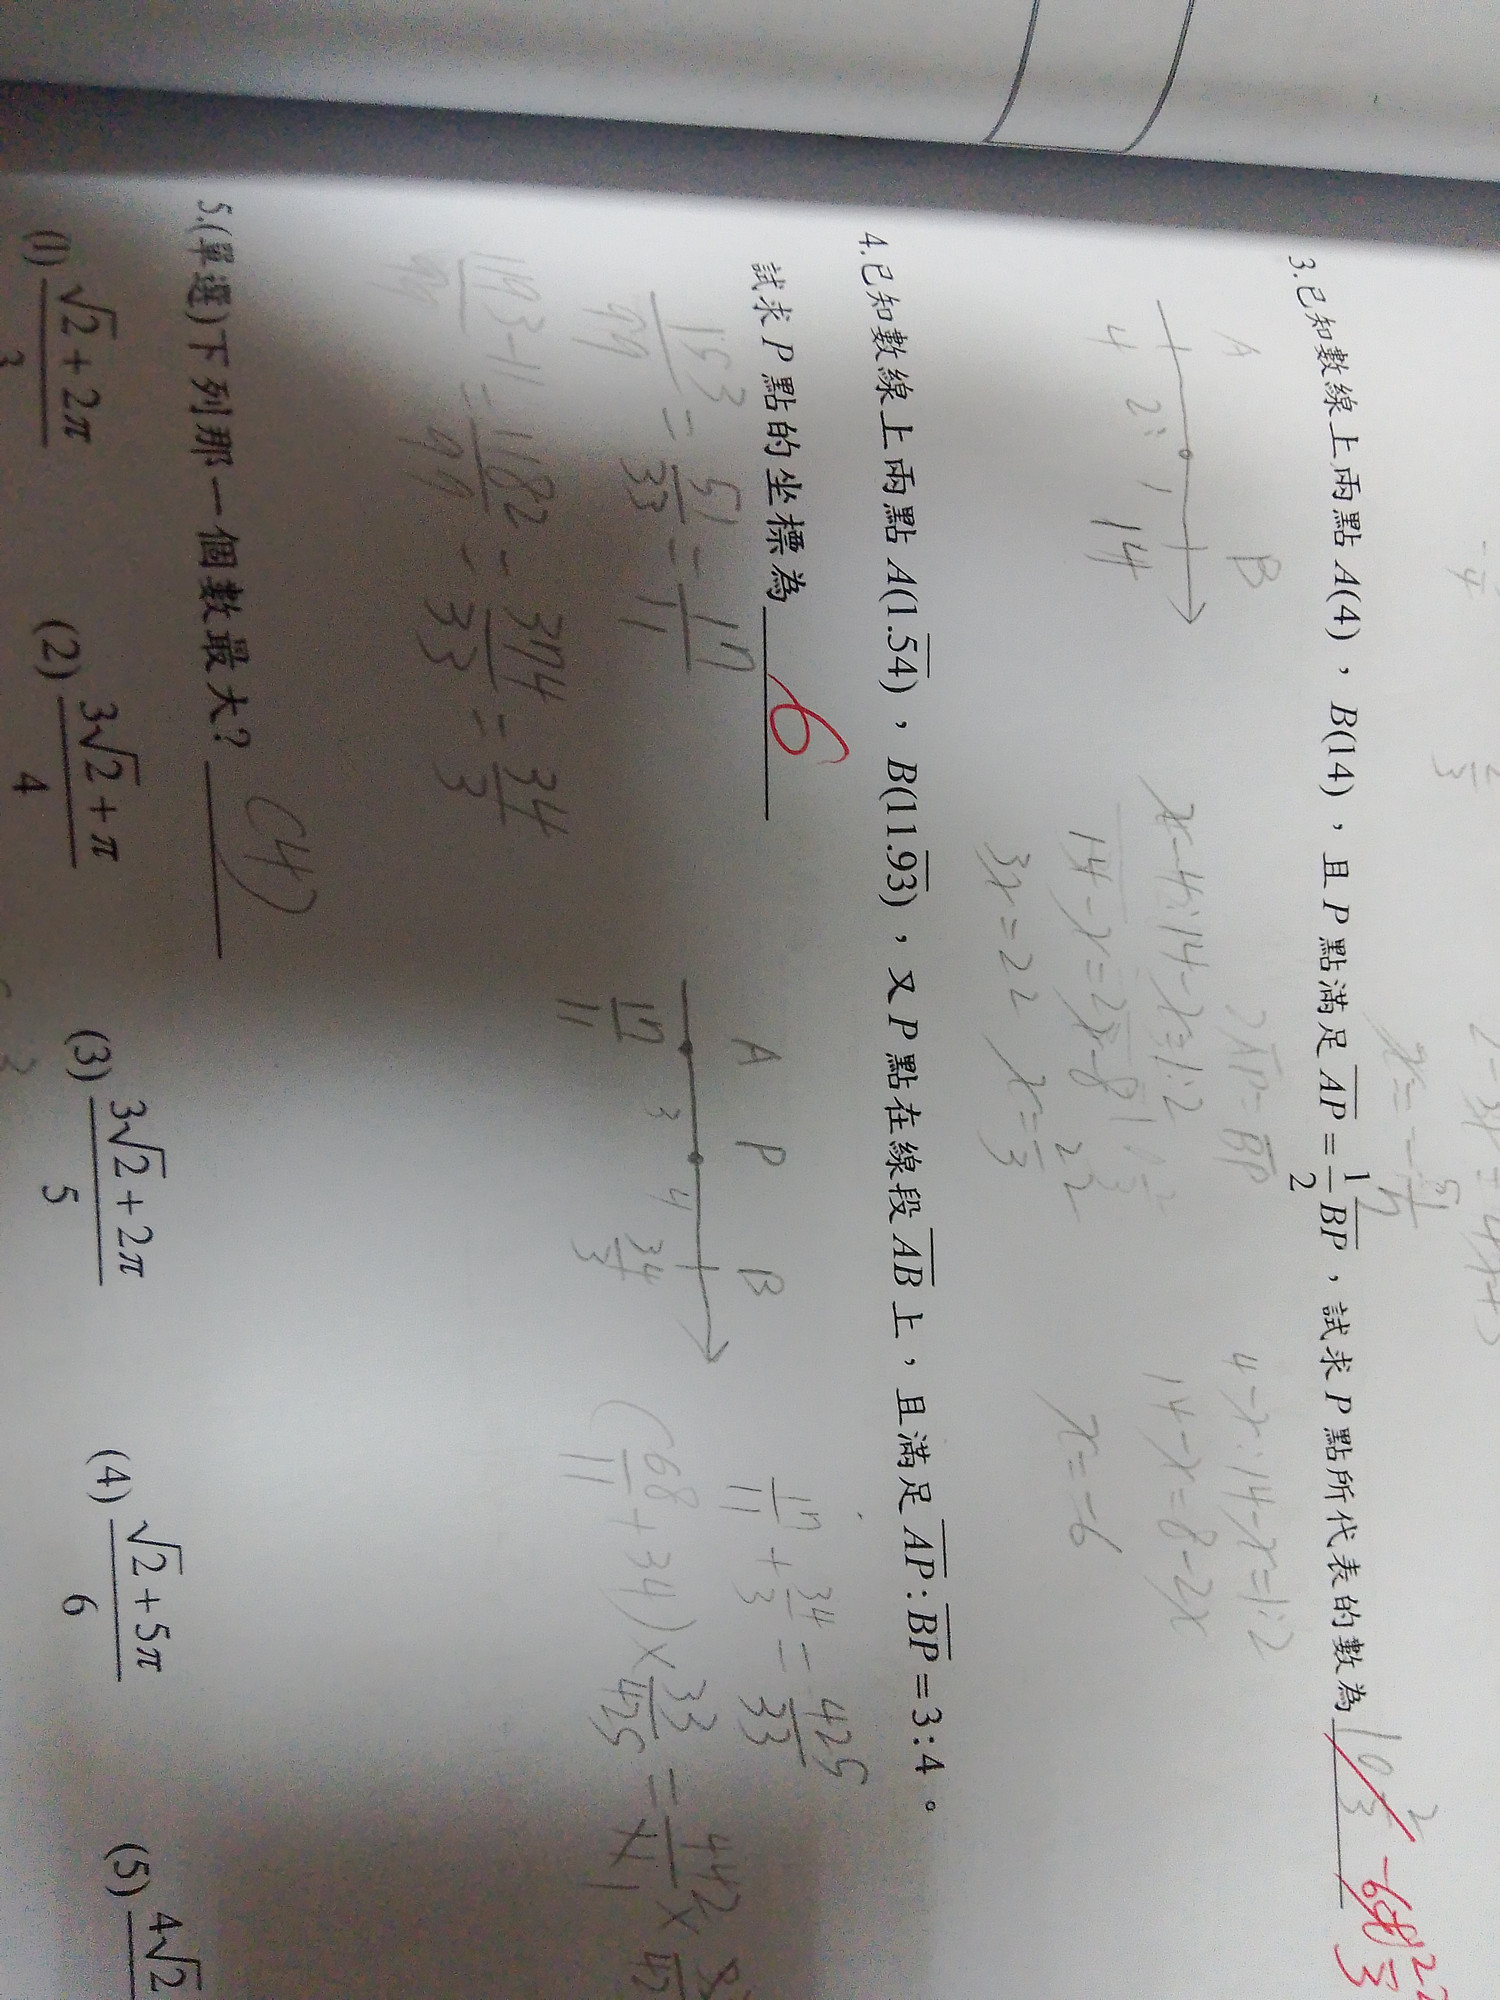 3.已知數線上兩點 A(4)，B(14)，且 P 點滿足 \overline{AP} = \frac{1}{2}\overline{BP}，試求 P 點所代表的數為
A B
4 2: 1 14
2\overline{AP} = \overline{BP}
x-4:14-x=1:2
14-x=2x-8
3x=22
4-x:14-x=1:2
14-x=8-2x
x=-6
4.已知數線上兩點 A(1.\overline{54})，B(11.\overline{93})，又 P 點在線段 \overline{AB} 上，且滿足 \overline{AP} : \overline{BP} = 3 : 4。
試求 P 點的坐標為 6
\frac{153}{99} = \frac{51}{33} = \frac{17}{11}
\frac{1193-11}{99} = \frac{1182}{99} = \frac{394}{33} = \frac{34}{3}
A P B
\frac{17}{11} 3 4 \frac{34}{3}
\frac{17}{11} + \frac{34}{3} = \frac{425}{33}
(\frac{68}{11} + 34) × \frac{33}{425} = \frac{442}{11} ×
5.(單選)下列那一個數最大? (4)
(1) \frac{\sqrt{2} + 2π}{3} (2) \frac{3\sqrt{2} + π}{4} (3) \frac{3\sqrt{2} + 2π}{5} (4) \frac{\sqrt{2} + 5π}{6} (5) 4\sqrt{2}